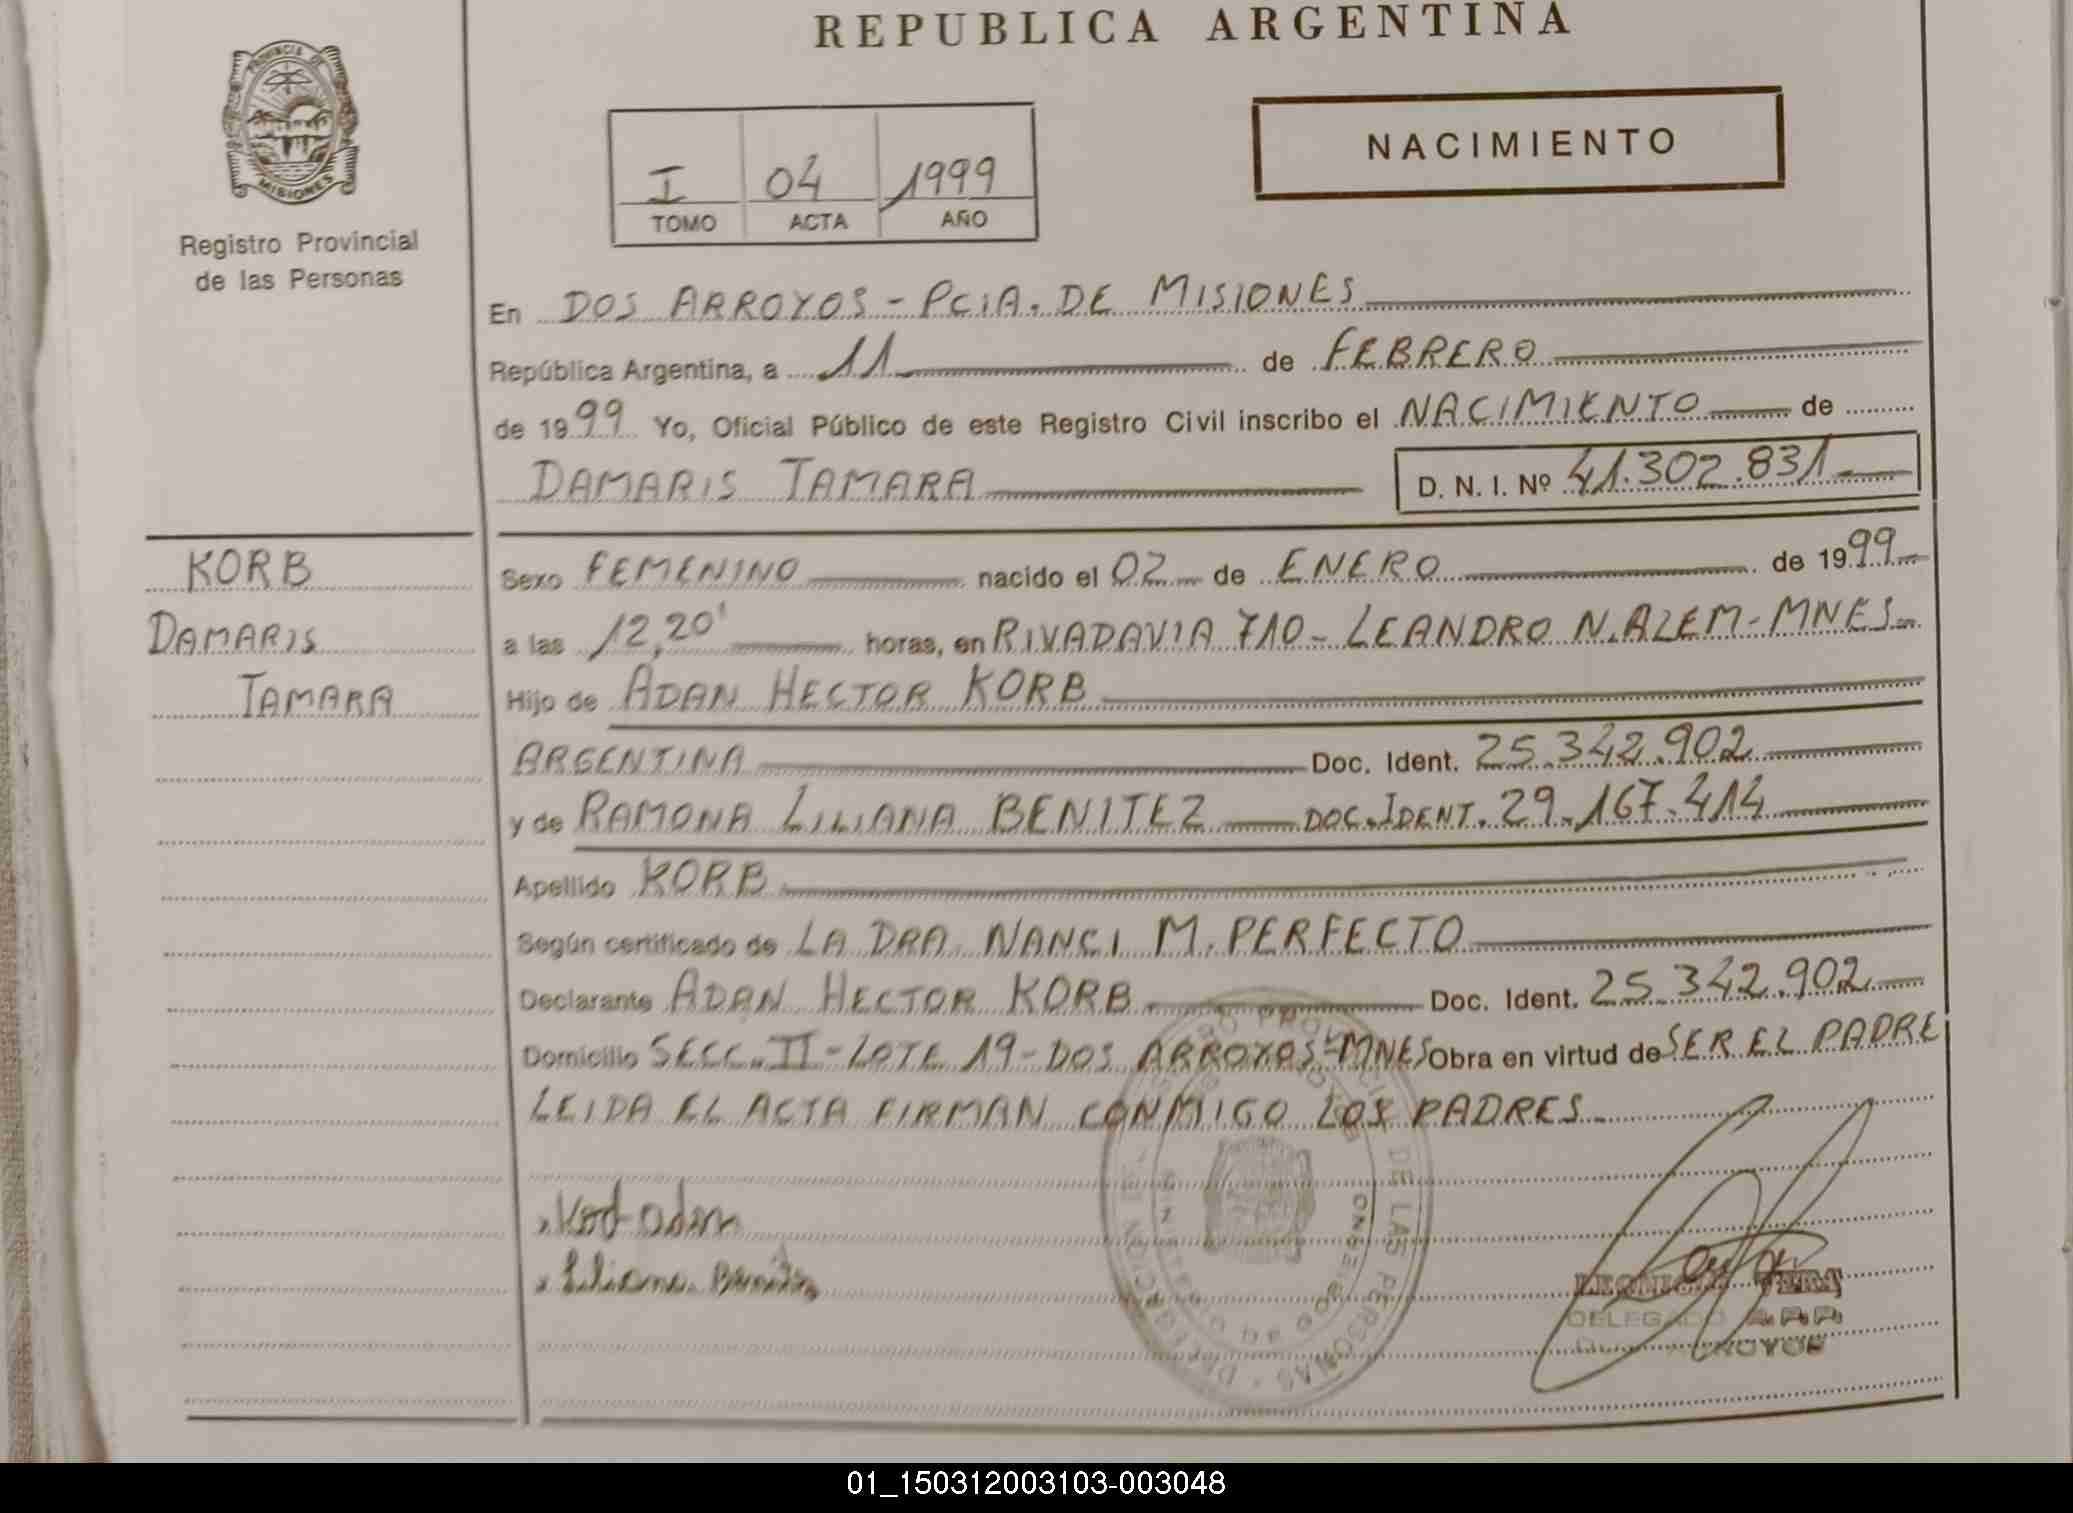 REPUBLICA ARGENTINA
PROVINCIA DE
MISIONES
Registro Provincial
de las Personas
I 04 1999
TOMO ACTA AÑO
NACIMIENTO
En DOS ARROYOS - PCIA. DE MISIONES
República Argentina, a 11 de FEBRERO
de 1999 Yo, Oficial Público de este Registro Civil inscribo el NACIMIENTO de
DAMARIS TAMARA D. N. I. Nº 41.302.831
KORB
DAMARIS
TAMARA
Sexo FEMENINO nacido el 02 de ENERO de 1999
a las 12,20' horas, en RIVADAVIA 710 - LEANDRO N. ALEM - MNES
Hijo de ADAN HECTOR KORB
ARGENTINA Doc. Ident. 25.342.902
y de RAMONA LILIANA BENITEZ DOC. IDENT. 29.167.414
Apellido KORB
Según certificado de LA DRA. NANCI M. PERFECTO
Declarante ADAN HECTOR KORB Doc. Ident. 25.342.902
Domicilio SECC. II - LOTE 19 - DOS ARROYOS - MNES Obra en virtud de SER EL PADRE
LEIDA EL ACTA FIRMAN CONMIGO LOS PADRES
Liliana Benitez
DE LAS PERSONAS
DELEGADO
01_150312003103-003048